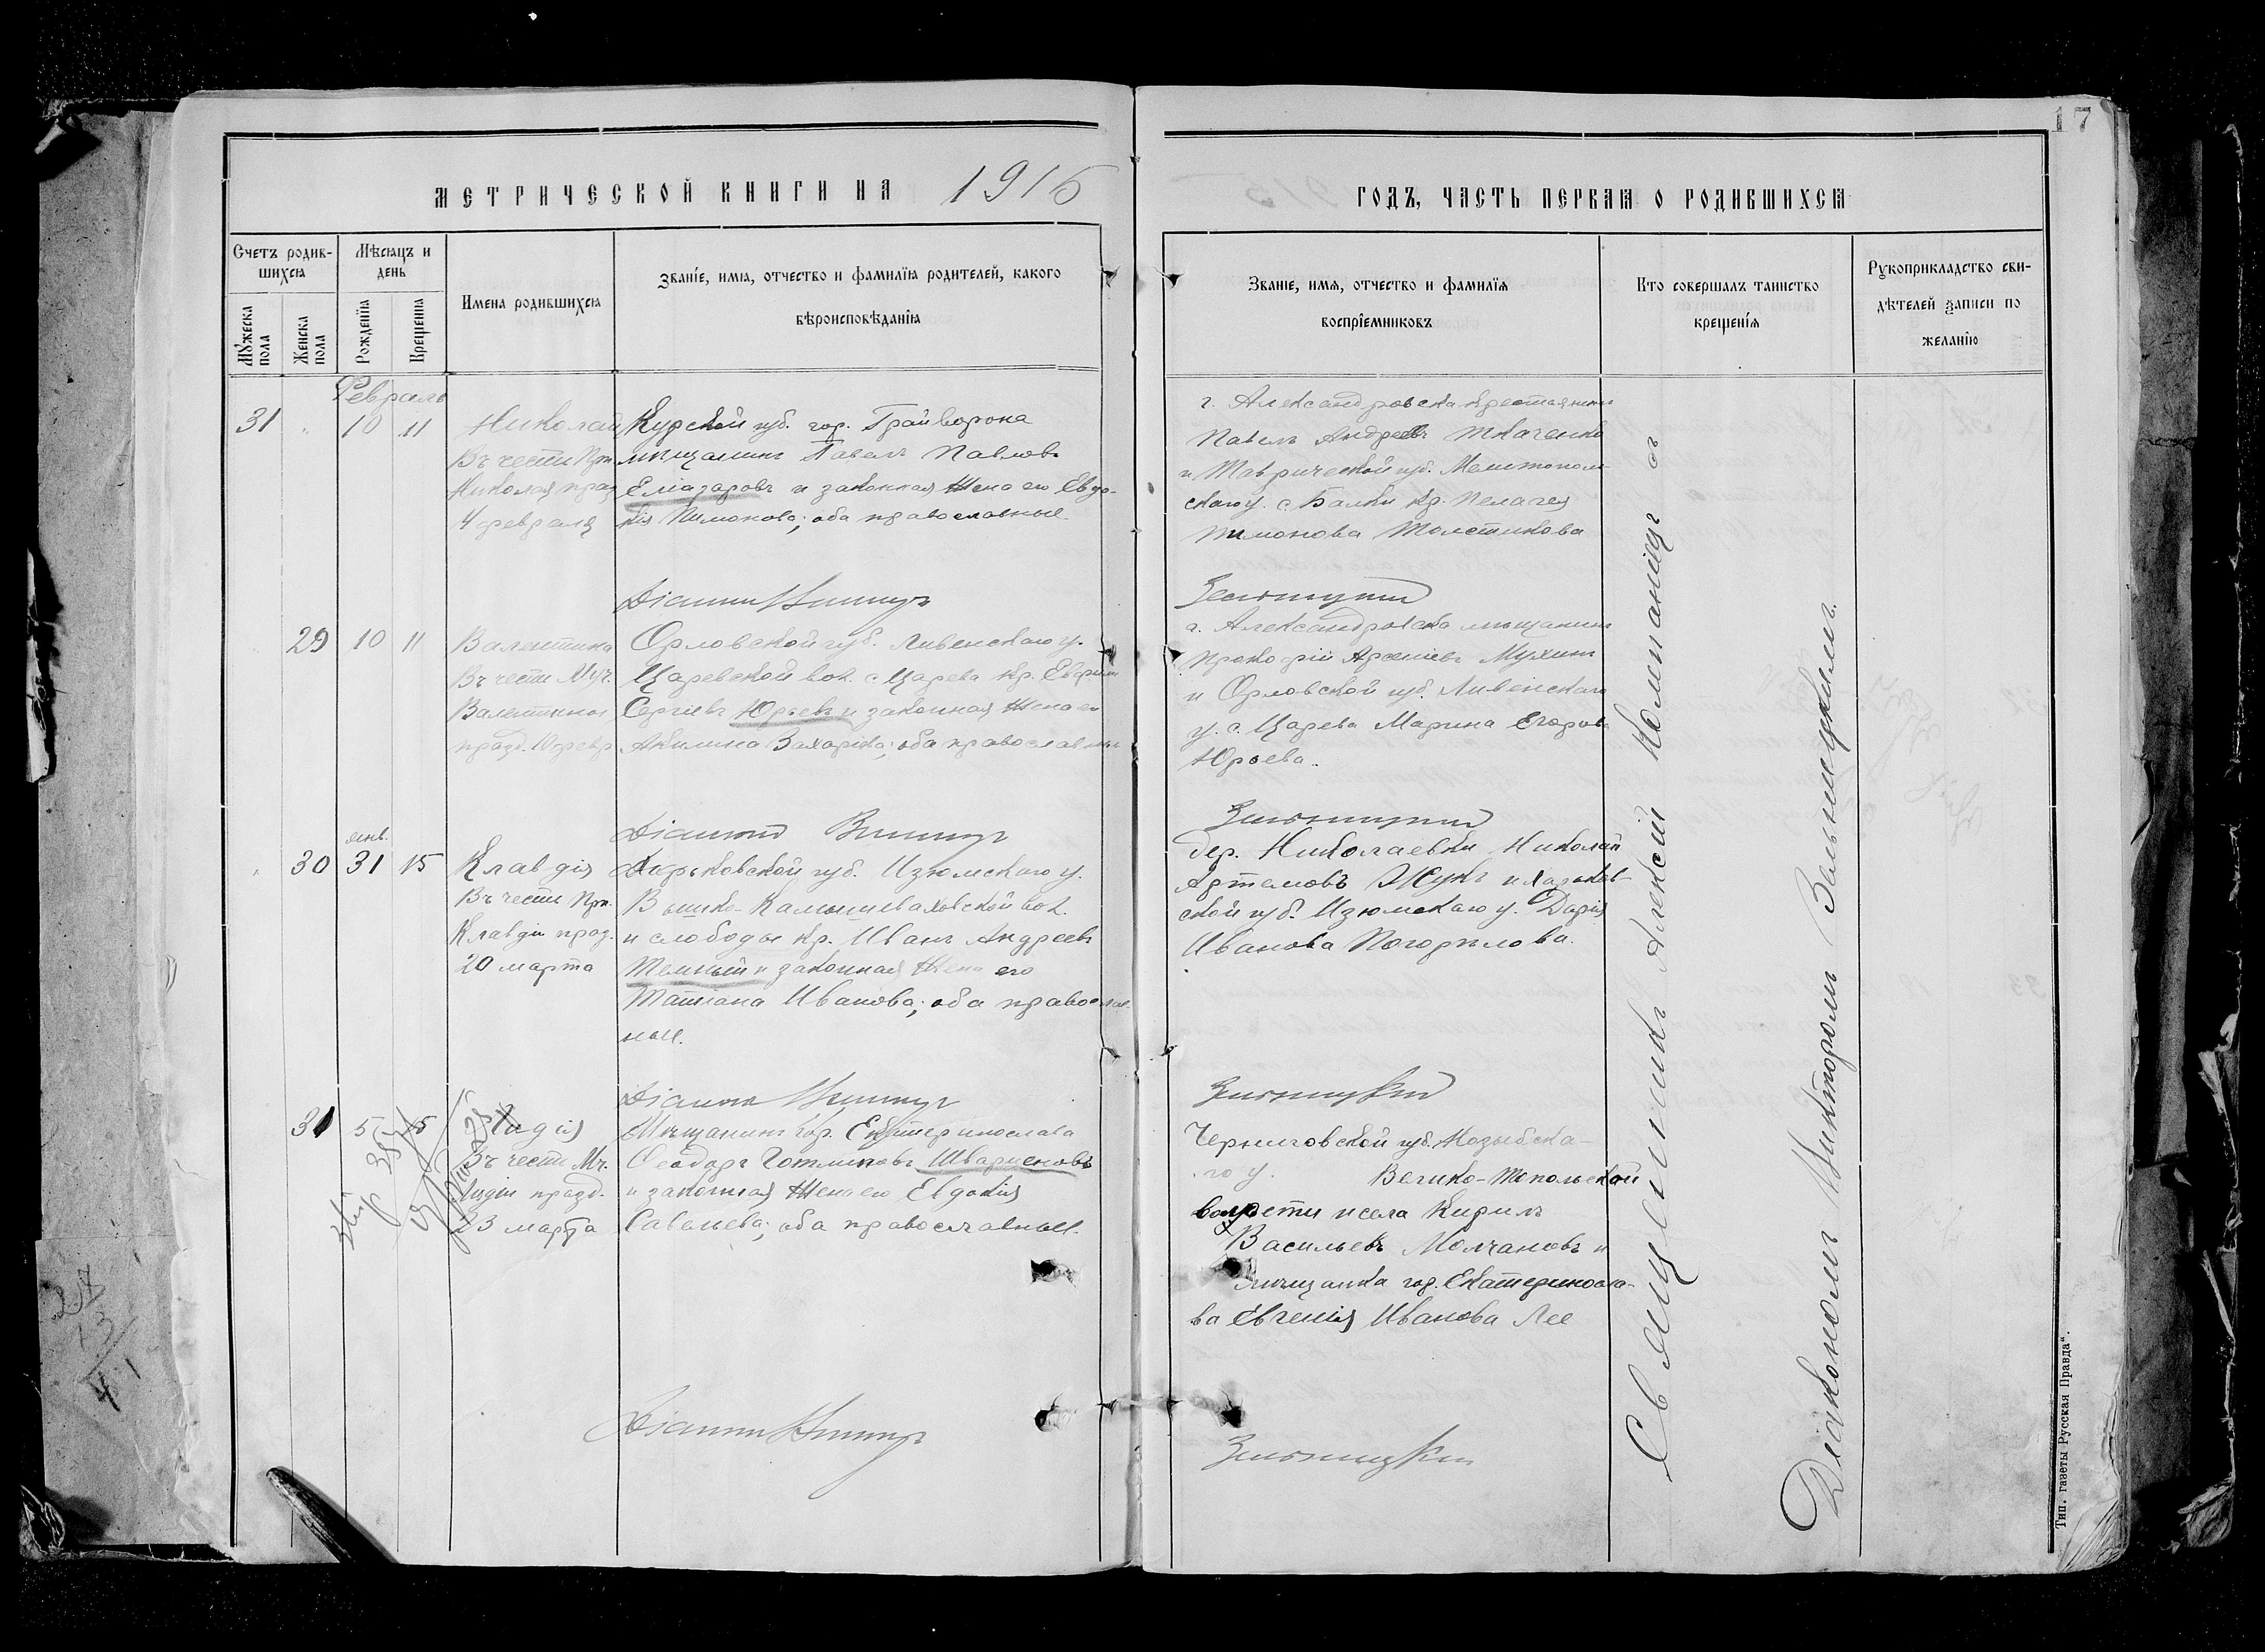 17
МЕТРИЧЕСКОЙ КНИГИ НА 1916
ГОДЪ, ЧАСТЬ ПЕРВАЯ О РОДИВШИХСЯ
Счетъ родив-
шихся
Мѣсяцъ и
день
Мужеска
пола
Женска
пола
Рожденія
Крещенія
Имена родившихся
Званіе, имя, отчество и фамилія родителей, какого
вѣроисповѣданія
Званіе, имя, отчество и фамилія
воспріемниковъ
Кто совершалъ таинство
крещенія
Рукоприкладство сви-
дѣтелей записи по
желанію
Февраль
31 10 11
Николай
Въ честь Прп.
Николая праз
4 февраля
Курской губ. гор. Грайворона
мѣщанинъ Павелъ Павловъ
Еліазаровъ и законная жена его Евдо-
кія Пимонова; оба православные
г. Александровска крестьянинъ
Павелъ Андреевъ Ткаченко
и Таврической губ. Мелитополь-
скаго у. с. Балки кр. Пелагея
Тимонова Толстикова
29 10 11
Валентина
Въ честь Муч.
Валентины
празд. 10 февр
Орловской губ. Ливенскаго у.
Царевской вол. с. Царева кр. Евфим
Сергіевъ Юрьевъ и законная жена его
Акилина Захаріева; оба православные
г. Александровска мѣщанинъ
Прокофій Арсеніевъ Мухинъ
и Орловской губ. Ливенскаго
у. с. Царева Марина Егорова
Юрьева.
янв.
30 31 15
Клавдія
Въ честь Прп.
Клавдіи праз.
20 марта
Харьковской губ. Изюмскаго у.
Камышевахской вол.
и слободы кр. Иванъ Андреевъ
Темный и законная жена его
Татіана Иванова; оба православ-
ные.
дер. Николаевки Николай
Артемовъ Жукъ и Харьков-
ской губ. Изюмскаго у. Дарія
Иванова Погорѣлова.
31 5 15
Лидія
Въ честь Мч.
Лидіи празд.
23 марта
Мѣщанинъ гор. Екатеринослава
Ѳеодоръ Готлиповъ Шварценовъ
и законная жена его Евдокія
Савельева; оба православные.
Черниговской губ. Мозыбска-
го у. Велико-Топольской
волости и села Кирилъ
Васильевъ Молчановъ и
мѣщанка гор. Екатериносла-
ва Евгенія Иванова Лее
Священникъ Алексій Коломайцевъ съ
Діакономъ Викторомъ Зальницкимъ.
27
13
41
Тип. газеты Русская Правда".